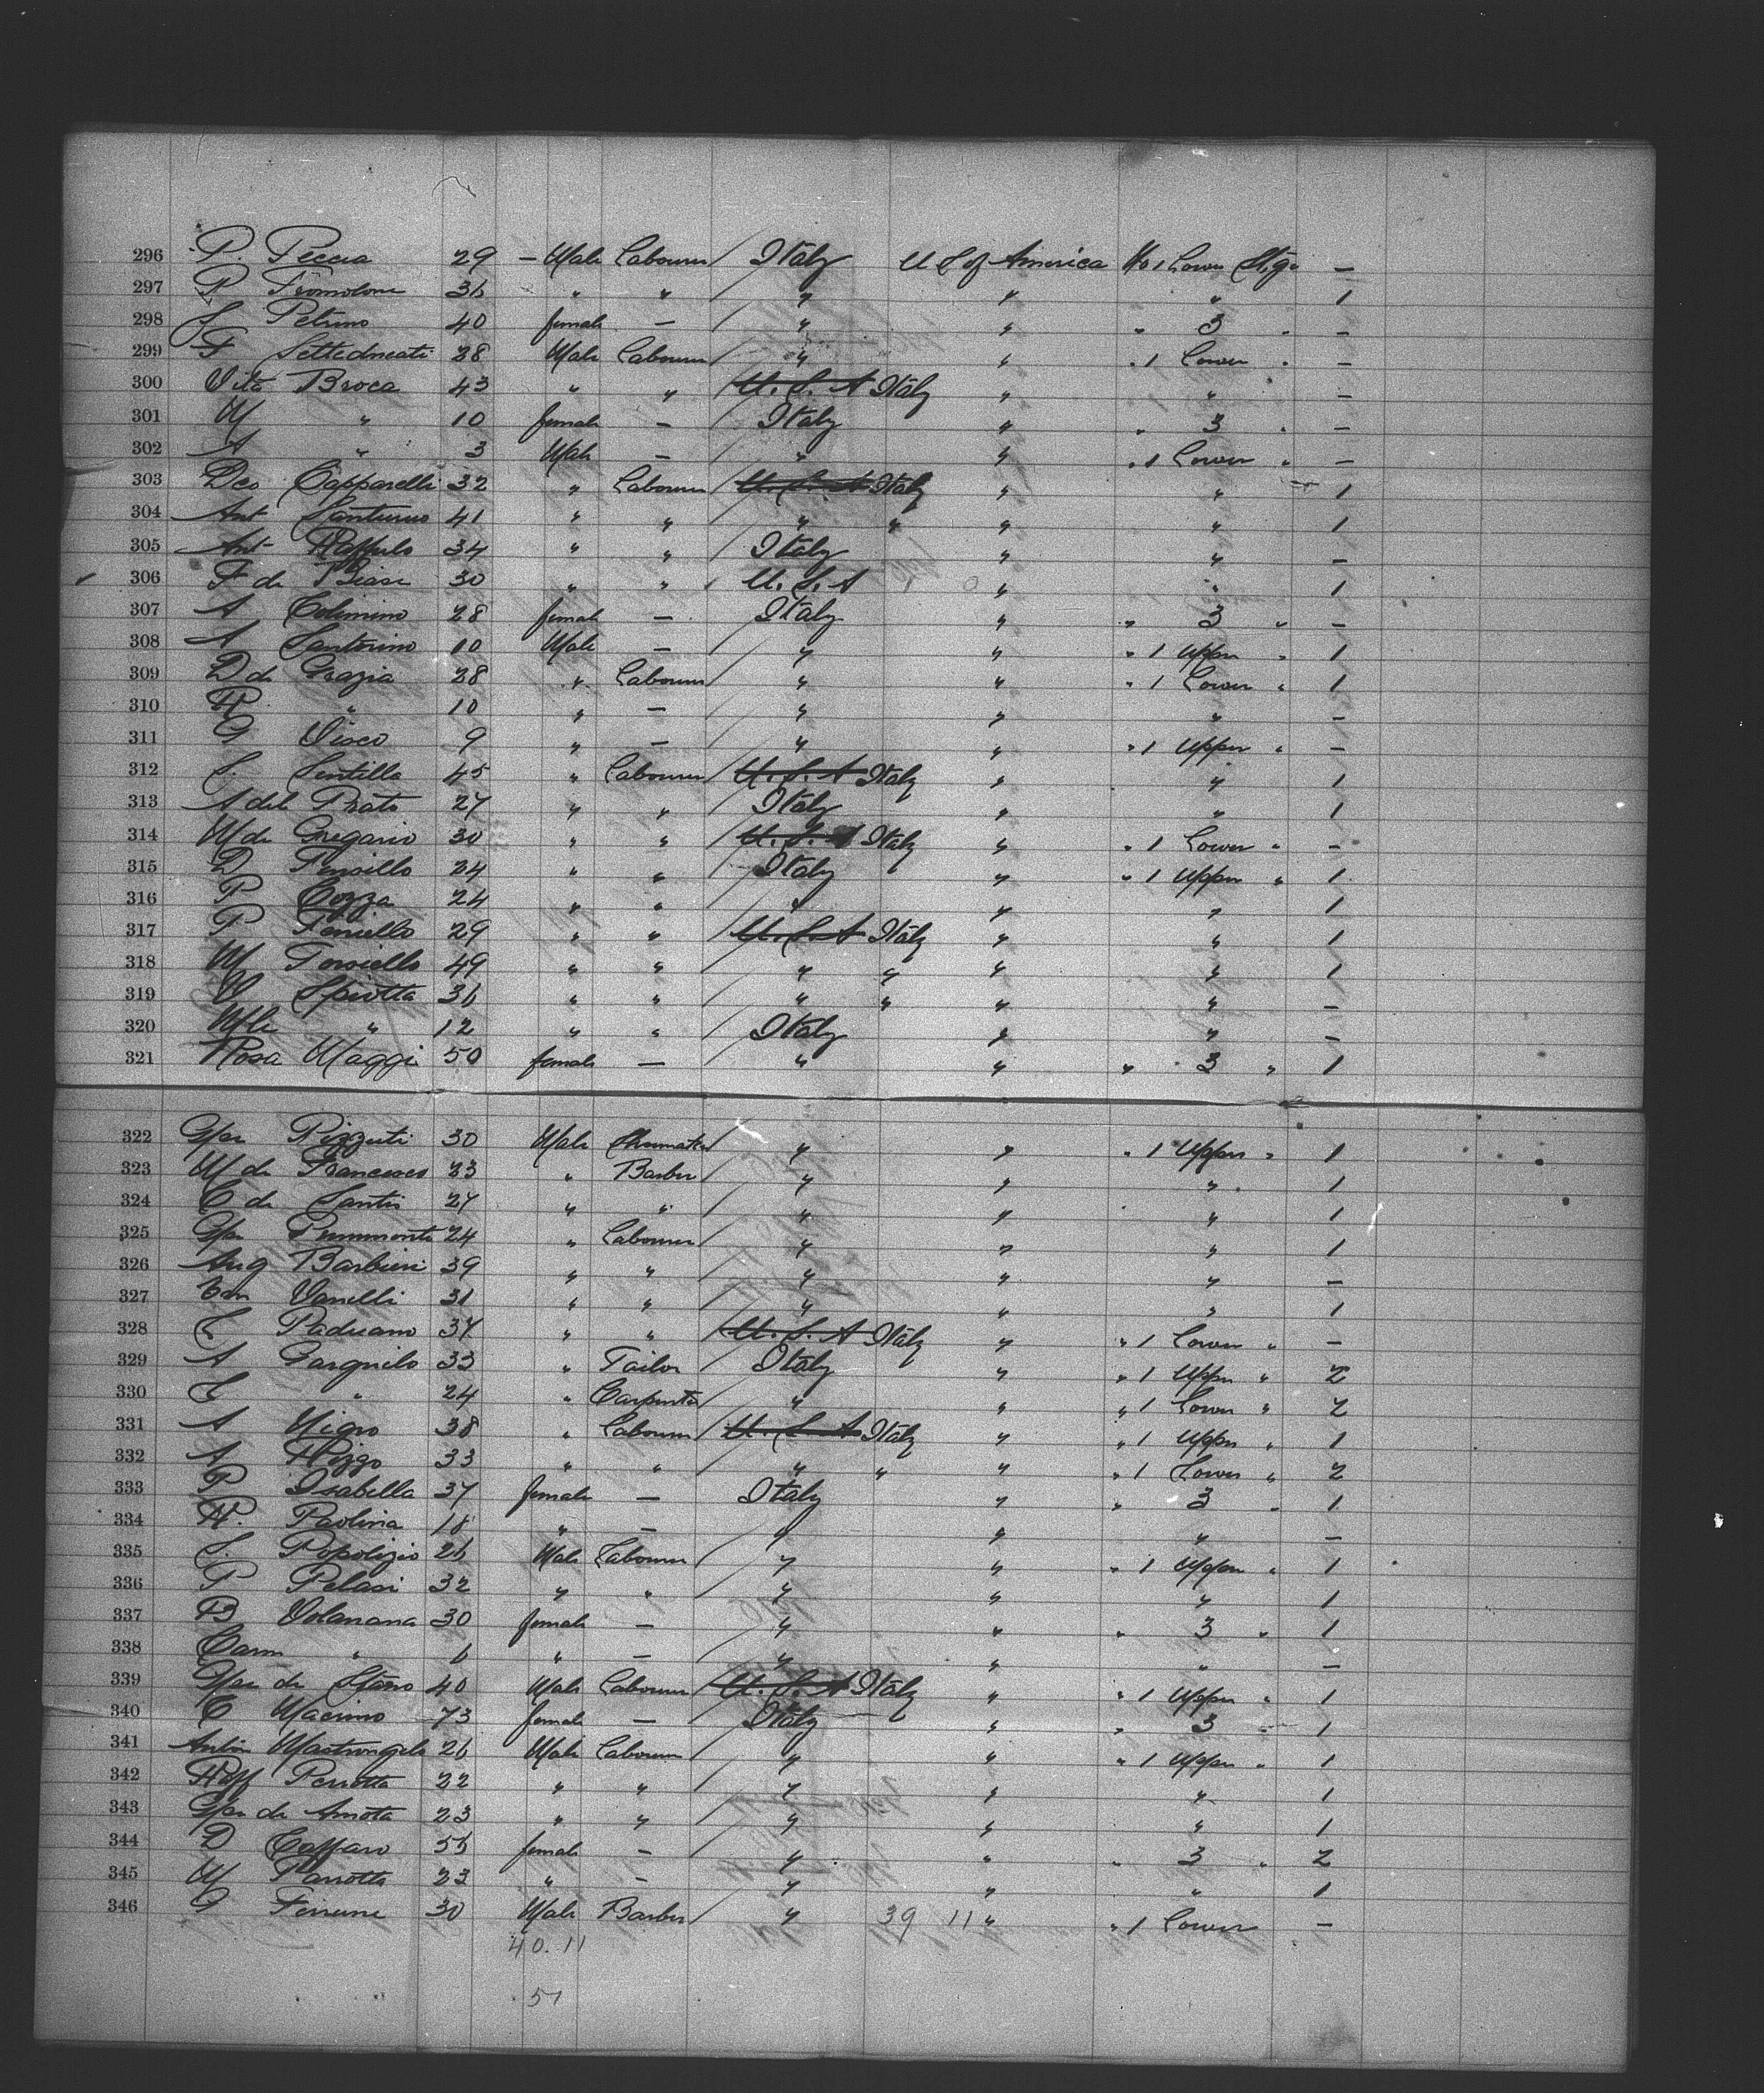 296 P. Peccia 29 — Male Labourer Italy U S of America No 1 Lower Stge —
297 P 36 " " " " " 1
298 S Petrino 40 female — " " " 3 " —
299 F 28 Male Labourer " " " 1 Lower " —
300 Vito Broca 43 " " U.S.A Italy " " —
301 M " 10 female — Italy " " 3 " —
302 A " 3 Male — " " " 1 Lower " —
303 Dco Capparelli 32 " Labourer U.S.A Italy " " 1
304 Ant Santurno 41 " " " " " " 1
305 Ant Raffulo 34 " " Italy " " —
306 F de Biase 30 " " U.S.A " " 1
307 A Colimino 28 female — Italy " " 3 " —
308 A Santorino 10 Male — " " " 1 Upper " 1
309 D de Grazia 28 " Labourer " " " 1 Lower " 1
310 " 10 " — " " " —
311 G Visco 9 " — " " " 1 Upper " —
312 S. Sentilla 45 " Labourer U.S.A Italy " " 1
313 A del Prato 27 " " Italy " " 1
314 M de Gregario 30 " " U.S.A Italy " " 1 Lower " —
315 D 24 " " Italy " " 1 Upper " 1
316 P Cozza 24 " " " " " 1
317 P 29 " " U.S.A Italy " " 1
318 M Torsiello 49 " " " " " " 1
319 V Spiotta 36 " " " " " " —
320 Mle " 12 " " Italy " " —
321 Rosa Maggi 50 female — " " " 3 " 1
322 Gse Pizzuti 30 Male " " " 1 Upper " 1
323 M de Francesco 23 " Barber " " " 1
324 C de Santis 27 " " " " " 1
325 Gse Piemmonte 24 " Labourer " " " 1
326 Aug Barbieri 39 " " " " " —
327 Vanelli 31 " " " " " 1
328 C Paduano 37 " " U.S.A Italy " " 1 Lower " —
329 A Gargnilo 33 " Tailor Italy " " 1 Upper " 2
330 C " 24 " Carpenter " " " 1 Lower " 2
331 A Nigro 38 " Labourer U.S.A Italy " " 1 Upper " 1
332 A Rizzo 33 " " " " " " 1 Lower " 2
333 P Isabella 37 female — Italy " " 3 " 1
334 R. Paolina 18 " — " " " —
335 S. Popolizio 26 Male Labourer " " " 1 Upper " 1
336 P Pelasi 32 " " " " " 1
337 B Volanana 30 female — " " " 3 " 1
338 Carm " 6 " — " " " —
339 Gse de Stano 40 Male Labourer U.S.A Italy " " 1 Upper " 1
340 C Macrino 73 female — Italy " " 3 " 1
341 Anton Mastrongelo 26 Male Labourer " " " 1 Upper " 1
342 Raff Perrotta 22 " " " " " 1
343 Gse de Amota 23 " " " " " 1
344 D Caffaro 56 female — " " " 3 " 2
345 M Parrotta 23 " — " " " 1
346 G 30 Male Barber " 39 11 " " 1 Lower —
40. 11
51